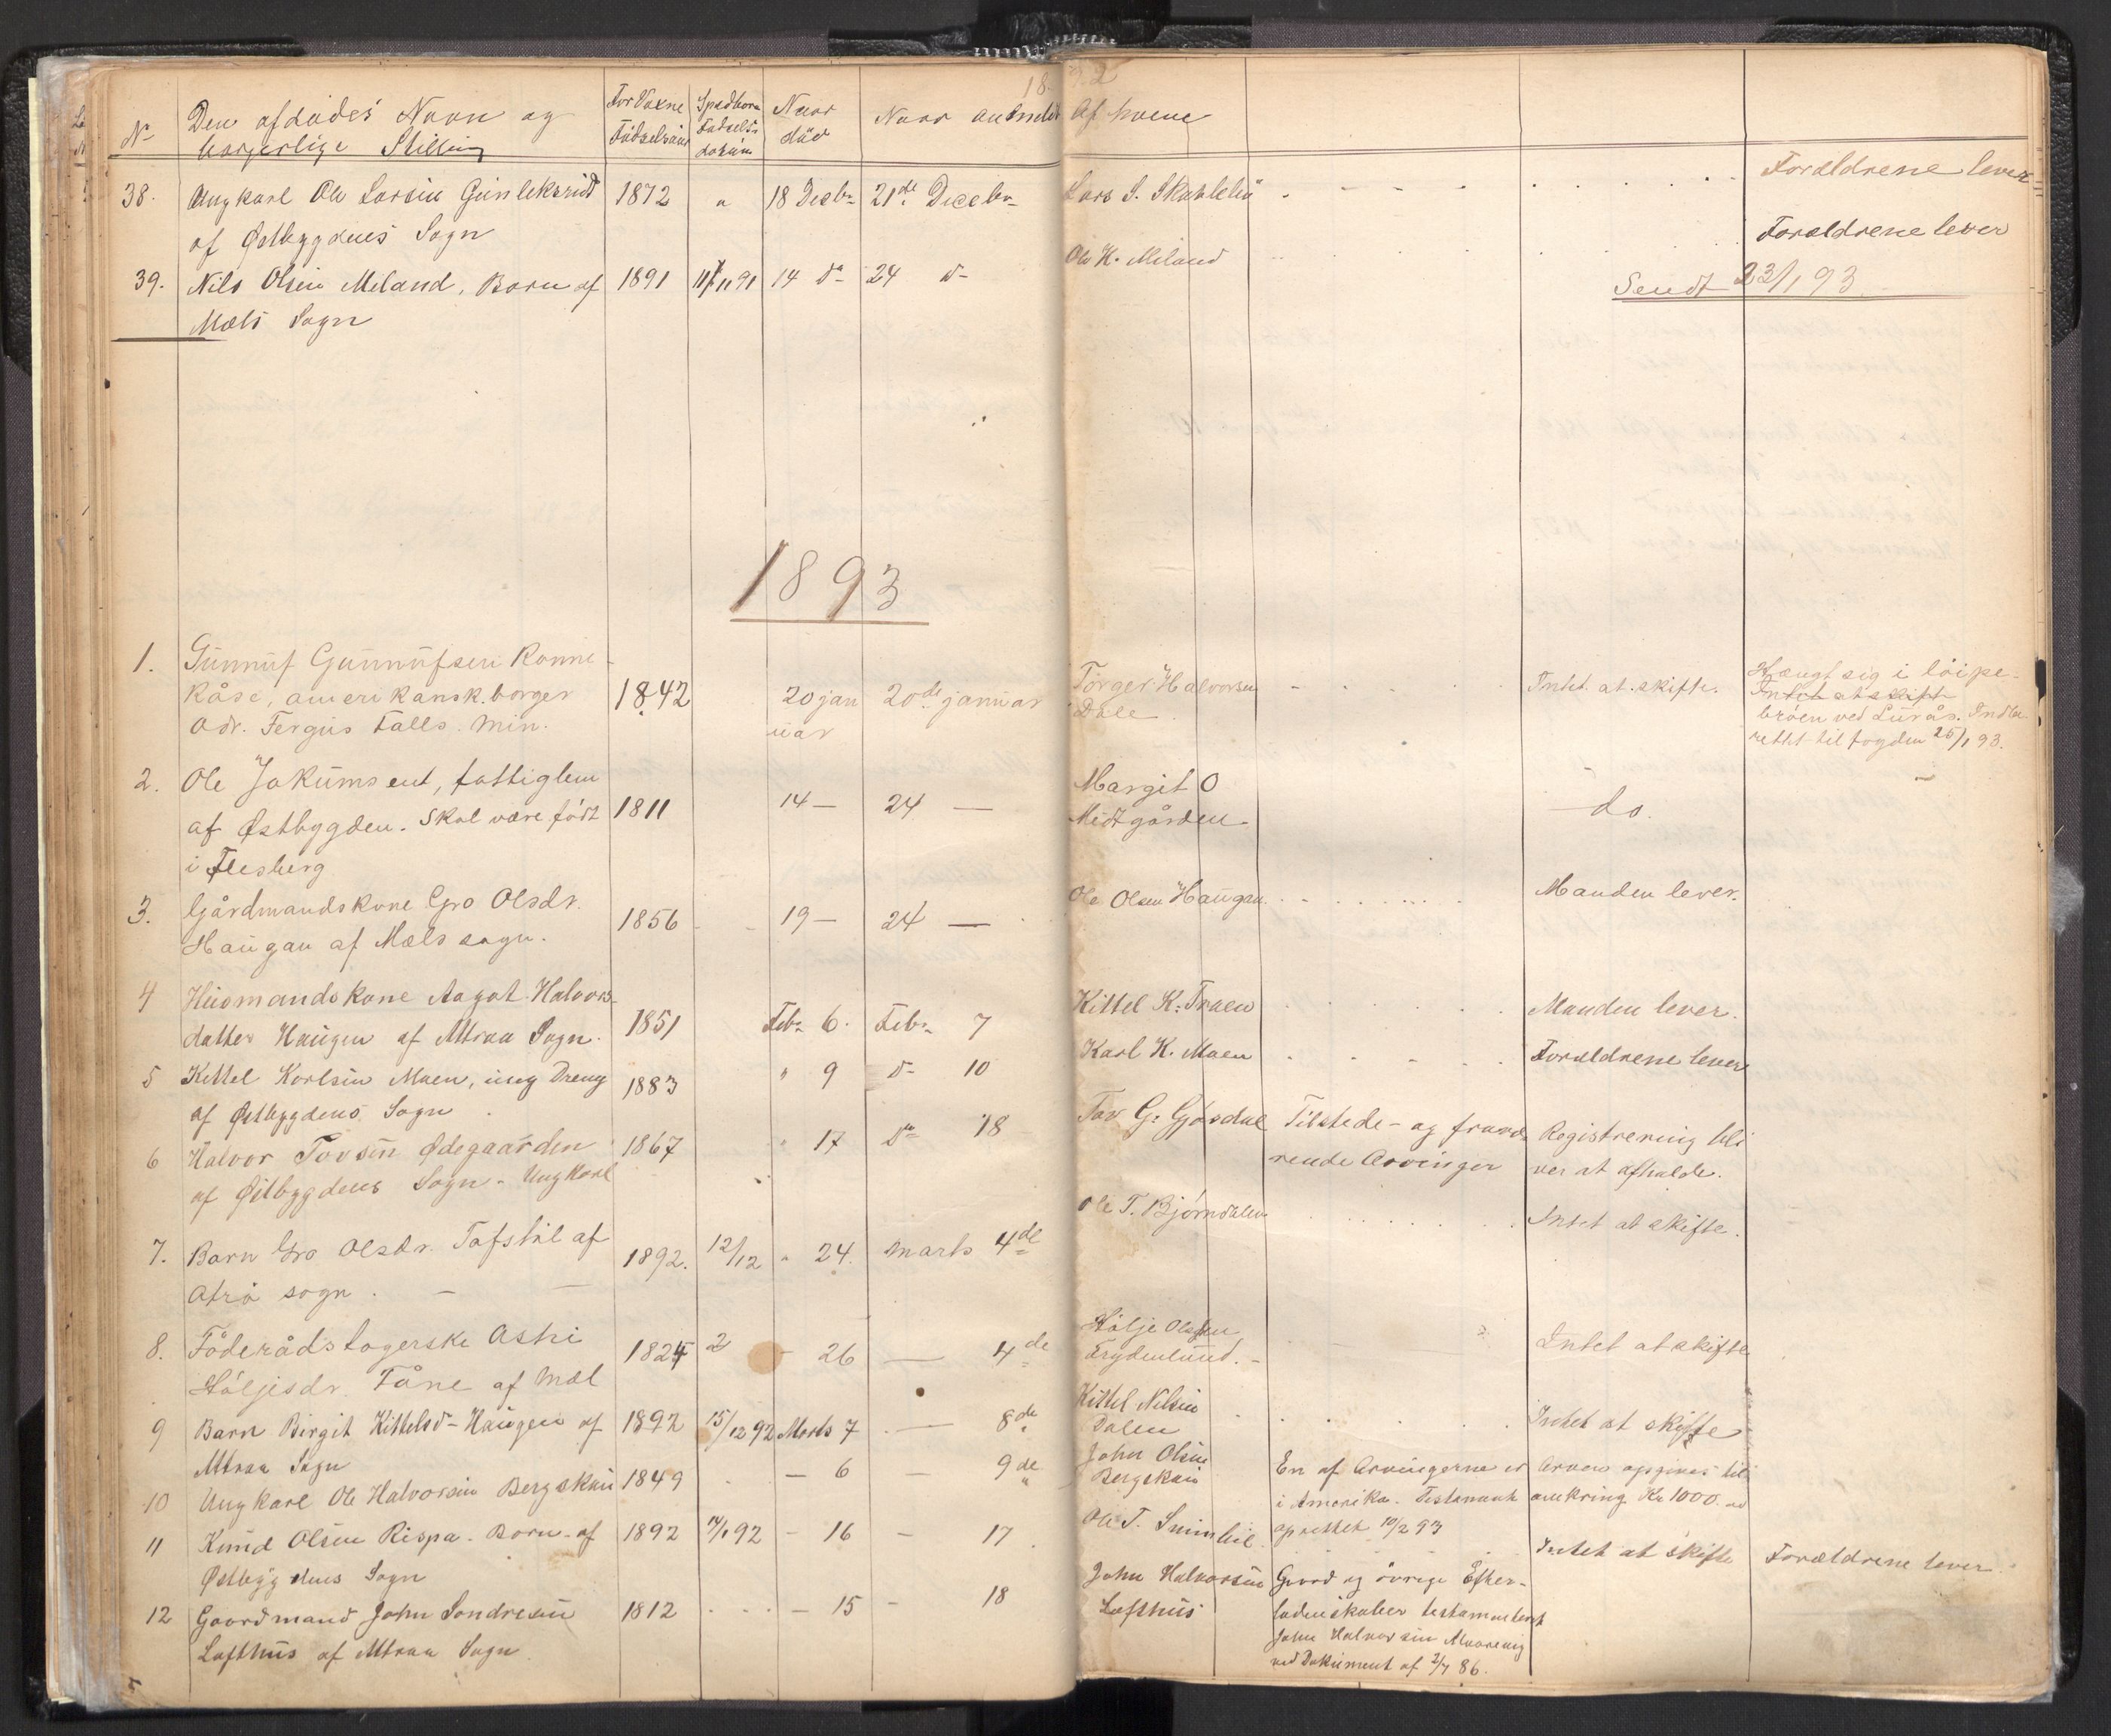 18 92
No Den afdødes Navn og borgerlige Stilling | For Voxne Fødselsaar | Spædbørn Fødselsdatum | Naar død | Naar anmeldt | Af hvem
38. Ungkarl Ole Larsen Gunleksrud 1872 " 18 Decbr 21de Decebr Lars S. Forældrene lever
af Østbygdens Sogn
39. Nils Olsen Miland, Barn af 1891 11/11 91 14 do 24 do Ole K. Miland Forældrene lever
Mæls Sogn
Sendt 23/1 93
1893
1. Gunnuf Gunnufsen Ronne-
Kåse, amerikansk borger 1842 20 jan 20de januar Torger Halvorsen Intet at skifte. Hængt sig i löipe-
adr. Fergus Falls. Min. uar Dale Intet at skifte
bröen ved Lurås. Indbe-
rettet til fogden 25/1 93.
2. Ole Jokumsent, fattiglem Margit O
af Østbygden. Skal være født 1811 14 — 24 — Midtgården do.
i Flesberg
3. Gårdmandskone Gro Olsdr. 1856 19 — 24 — Ole Olsen Haugan Manden lever.
Haugan af Mæls sogn.
4 Husmandskone Aagot Halvors-
datter Haugen af Attraa Sogn. 1851 Febr 6. Febr 7 Kittel K. Traen Manden lever.
5 Kittel Karlsen Moen, ung Dreng 1883 " 9 do 10 Karl K. Moen Forældrene lever
af Østbygdens Sogn
6 Halvor Tovsen Ødegaarden 1867 " 17 do 18 Tov G. Gjøsdal Tilstede- og fravæ- Registrering bli
af Østbygdens Sogn - Ungkarl rende Arvinger ver at afholde.
7. Barn Gro Olsdr. Tofstøl af 1892. 12/12 " 24. Marts 4de Ole T. Bjørndalen Intet at skifte.
Atrå sogn. — —
8. Föderådstagerske Astri 1824 2 - 26 — 4de Hölje Olsen Intet at skifte
Höljesdr. Fåne af Mæl Frydenlund.
9 Barn Birgit Kittelsd- Haugen af 1892 15/12 92 Marts 7 — 8de Kittel Nilsen Dalen Intet at skifte
Attraa Sogn
10 Ungkarl Ole Halvorsen Bergskas 1849 — 6 — 9de John Olsen En af Arvingerne er Arven opgives til
i Amerika. Testament omkring Kr 1000.
oprettet 10/2 93
11 Knud Olsen Rispa - Barn - af 1892 14/1 92 - 16 - 17 Ole T. Intet at skifte Forældrene lever
Østbygdens Sogn
12 Gaardmand John Sondresen 1812 - 15 - 18 John Halvorsen Gaard og övrige Efter-
Lofthus af Attraa Sogn Lofthus ladenskaber testamenteret
John Halvorsen
ved Dokument af 2/7 86.